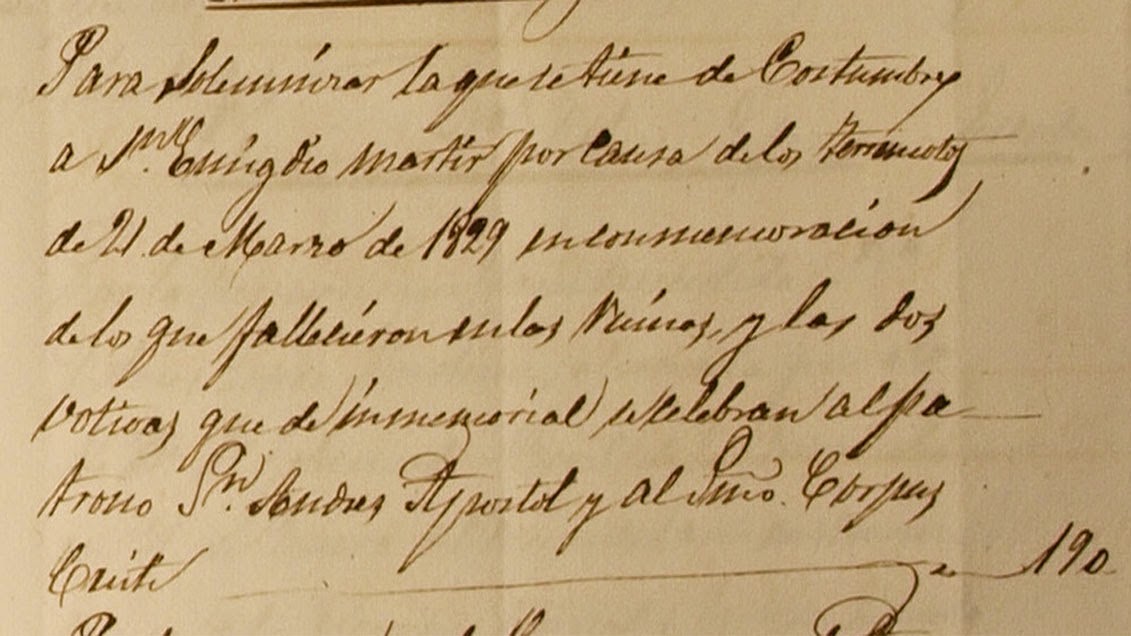 Para Solemnizar la que se tiene de Costumbre
a Sn. Emigdio martir por causa de los terremotos
de 21. de Marzo de 1829 en conmemoracion
de los que fallecieron en las Ruinas, y las dos
votivas que de inmemorial se selebran al pa-
trono Sn. Andres Apostol y al Smo. Corpus
Cristi 190